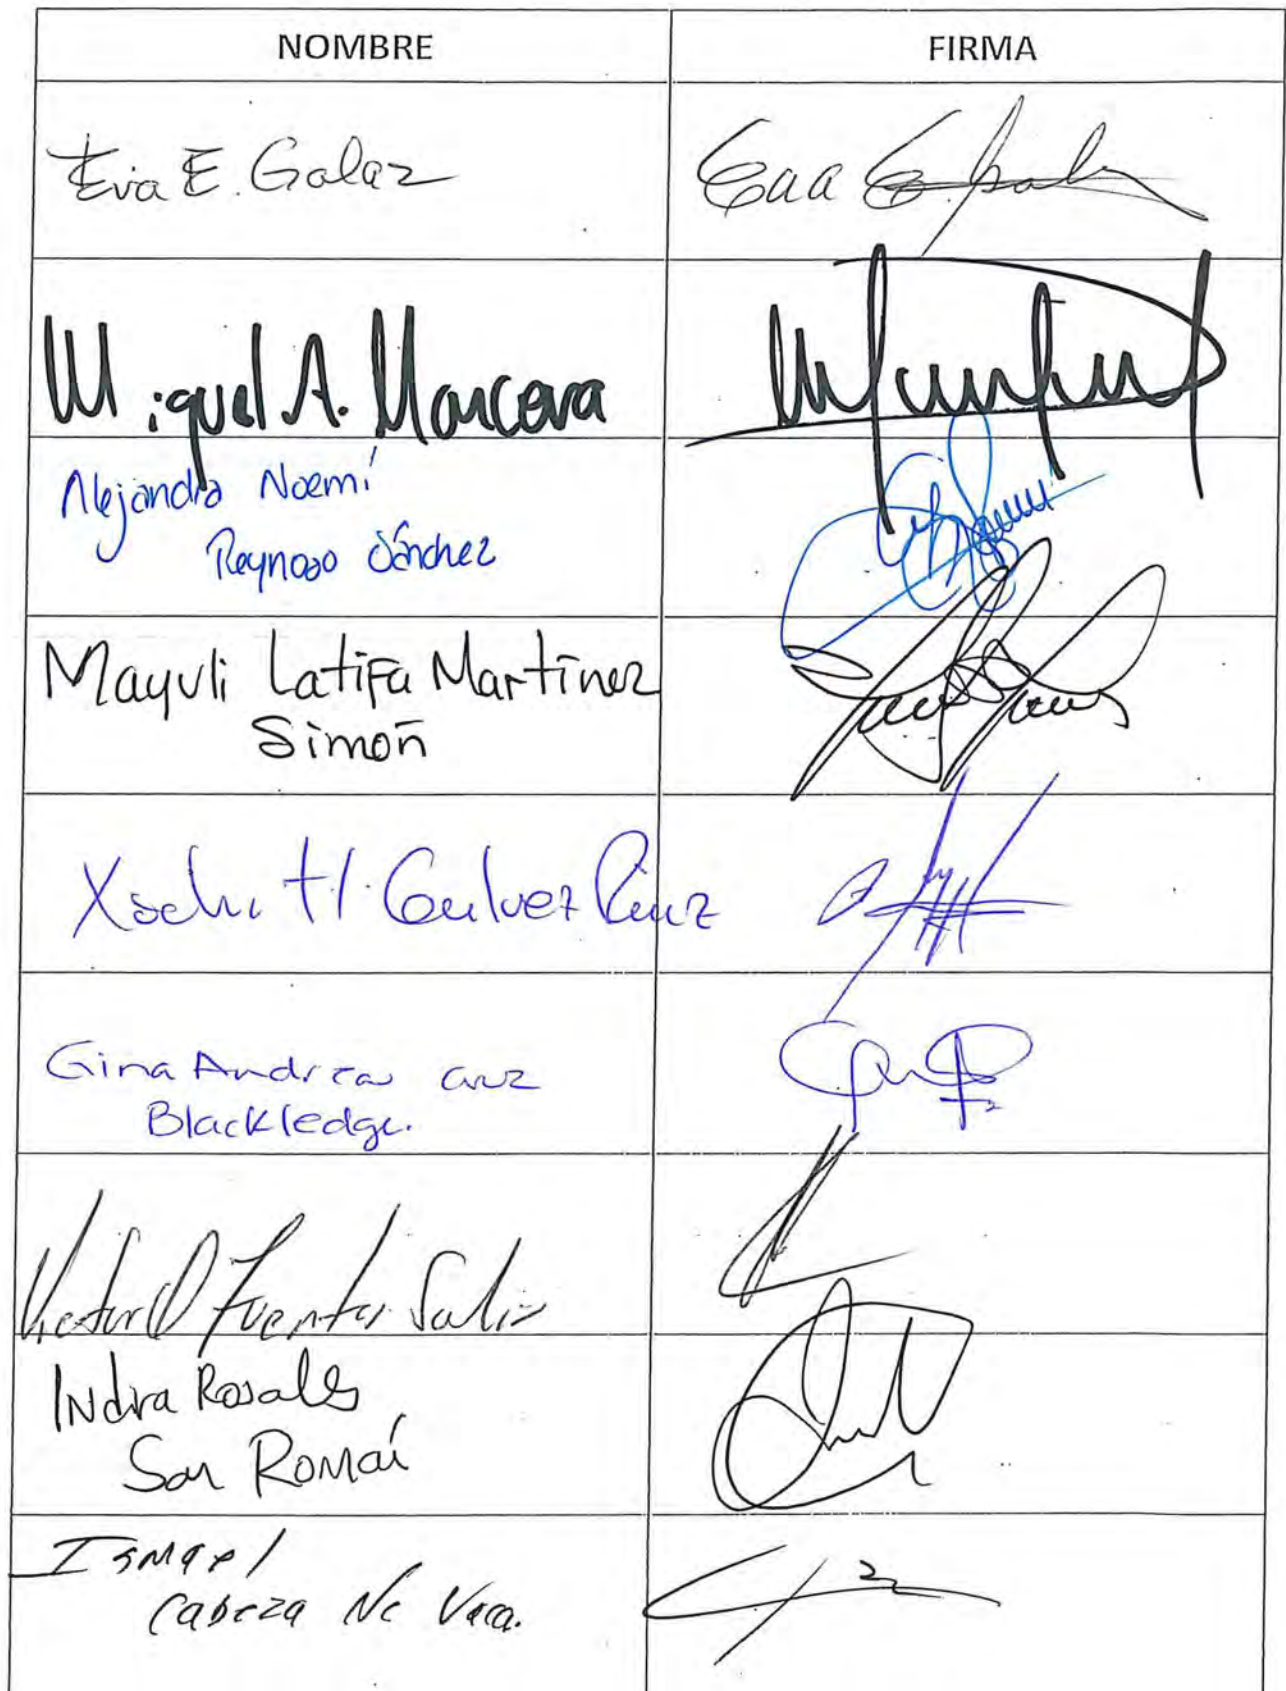 NOMBRE FIRMA
Eva E. Galaz
Eva E. Galaz
Miguel A. Mancera
Alejandra Noemí
Reynoso Sánchez
Mayuli Latifa Martínez
Simón
Xochitl Galvez Ruiz
Gina Andrea Cruz
Blackledge.
Victor O Fuentes Solis
Indira Rosales
San Román
Ismael
Cabeza de Vaca.